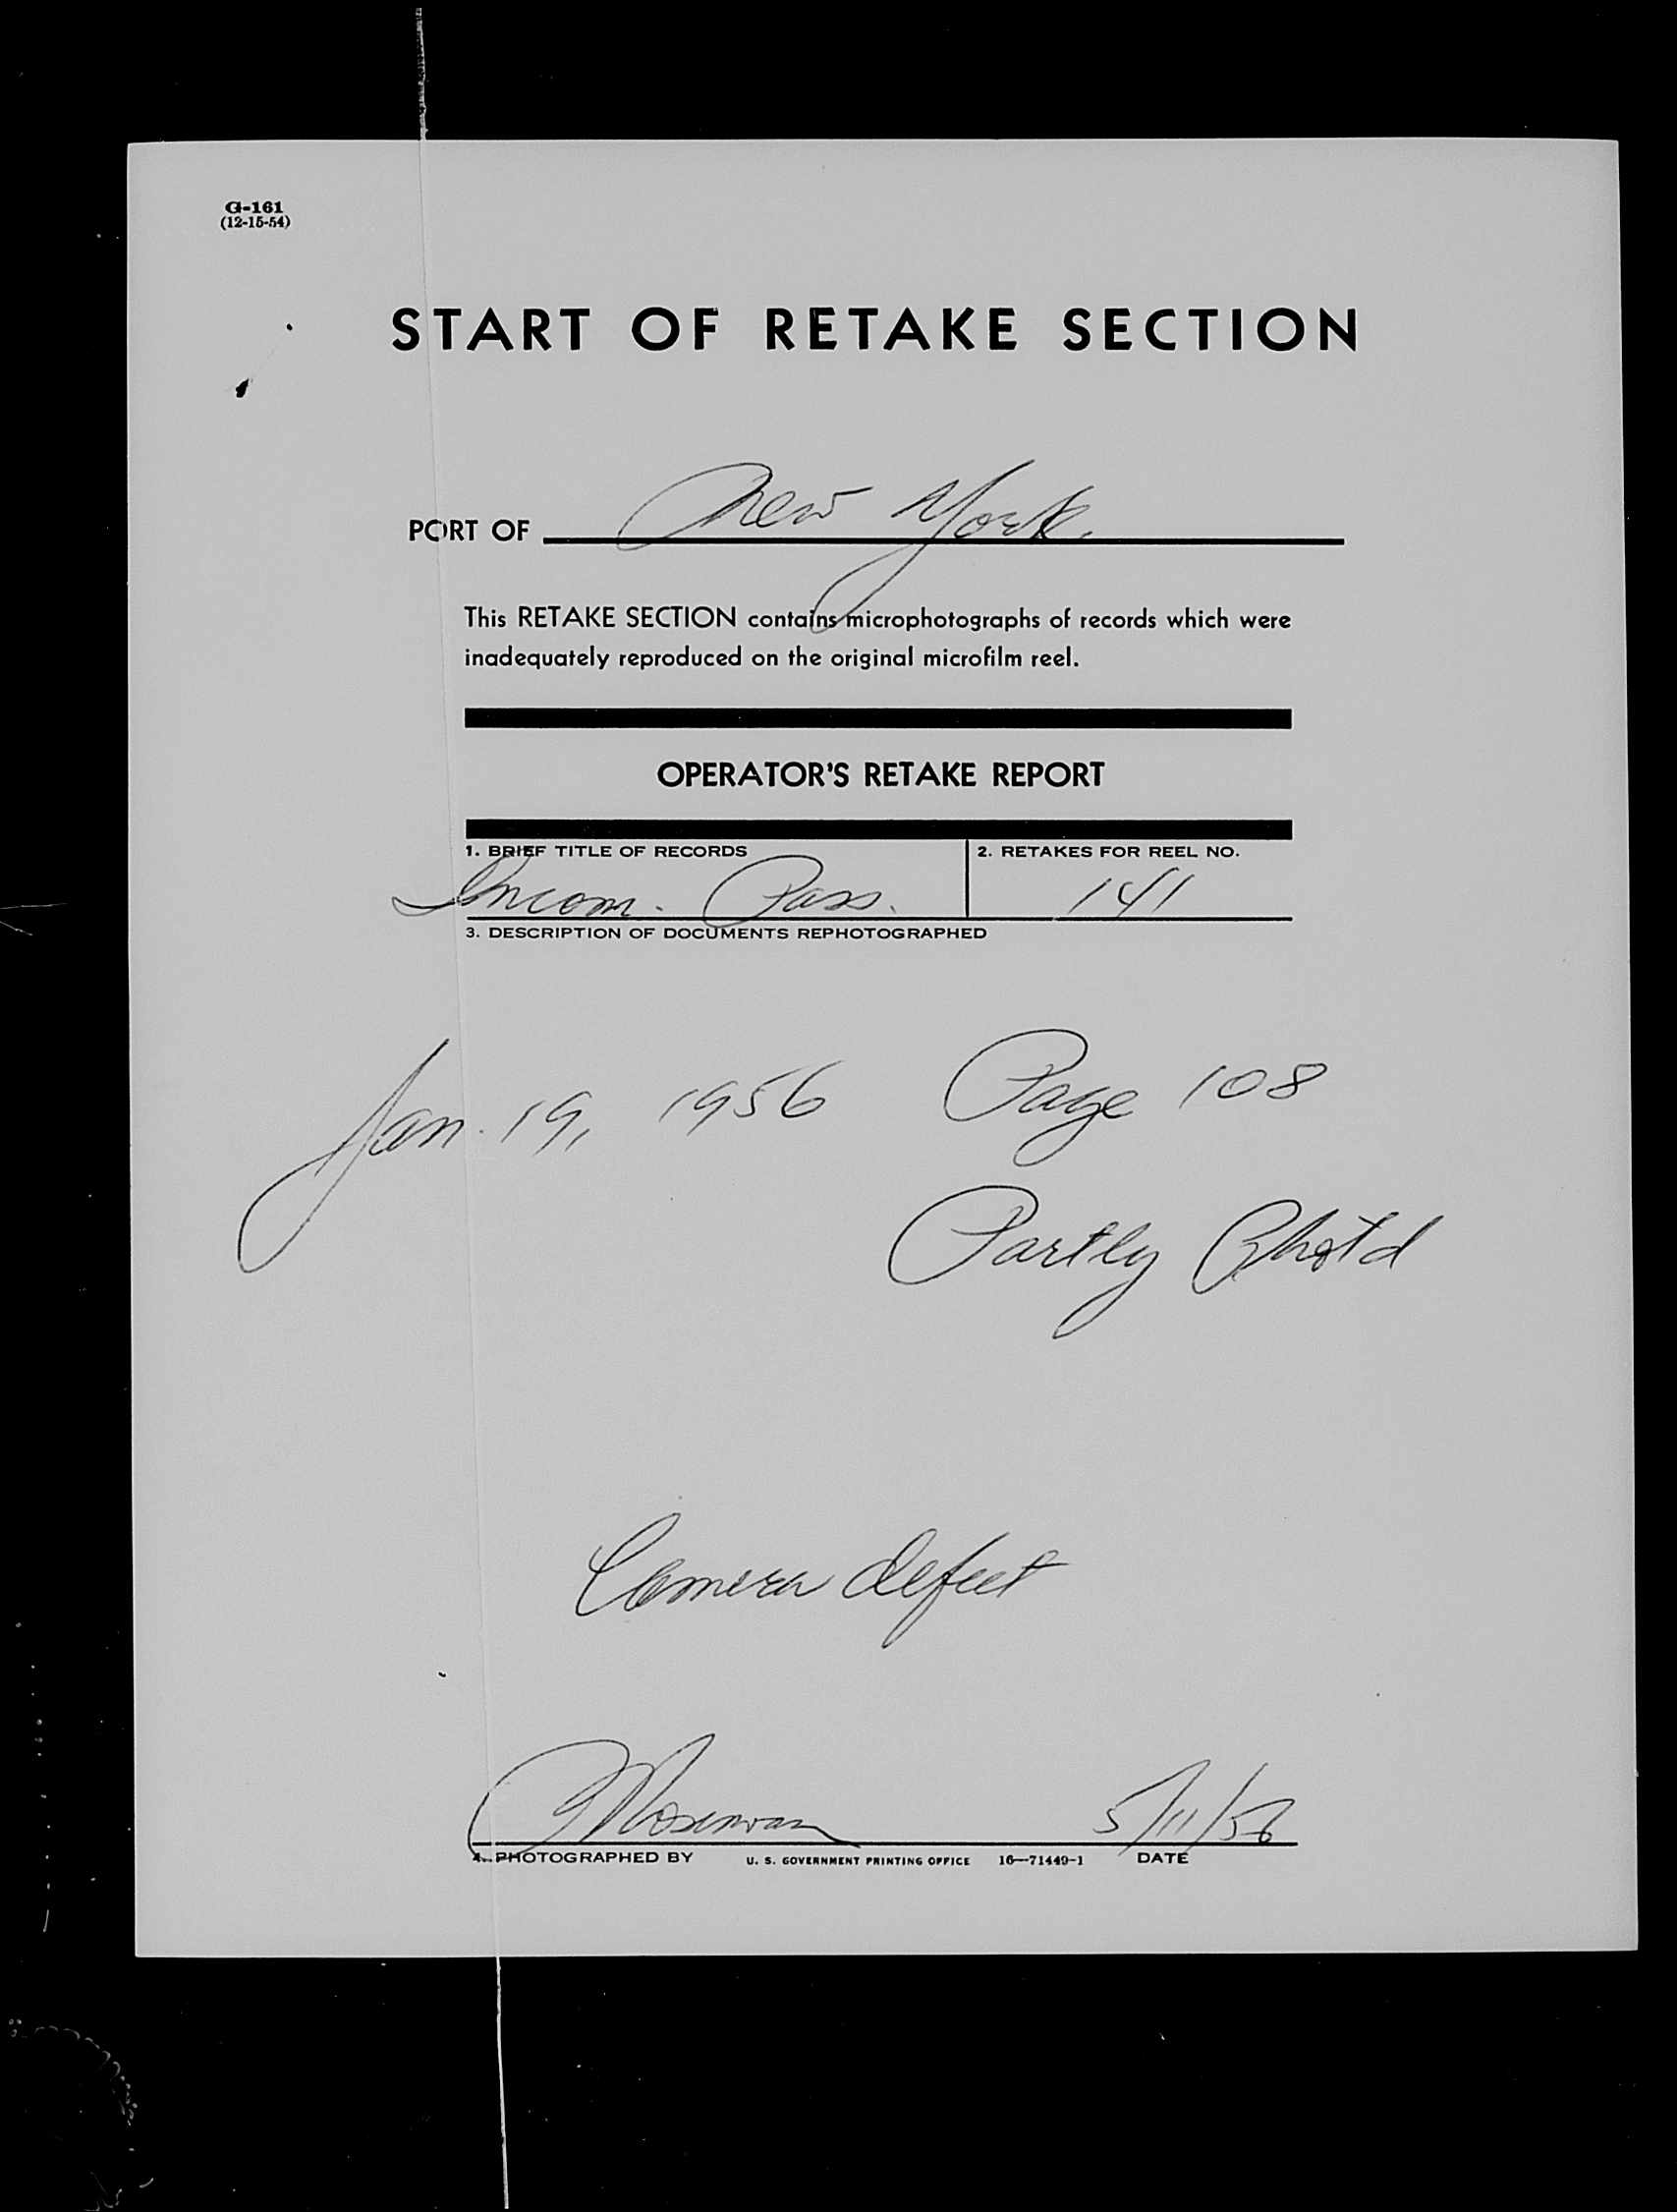 G-161
(12-15-54)
START OF RETAKE SECTION
PORT OF New York.
This RETAKE SECTION contains microphotographs of records which were
inadequately reproduced on the original microfilm reel.
OPERATOR'S RETAKE REPORT
1. BRIEF TITLE OF RECORDS 2. RETAKES FOR REEL NO.
Incom. Pass. 141
3. DESCRIPTION OF DOCUMENTS REPHOTOGRAPHED
Jan. 19, 1956 Page 108
Partly Phot'd
Camera defect
5/11/56
4. PHOTOGRAPHED BY U. S. GOVERNMENT PRINTING OFFICE 16—71449-1 DATE